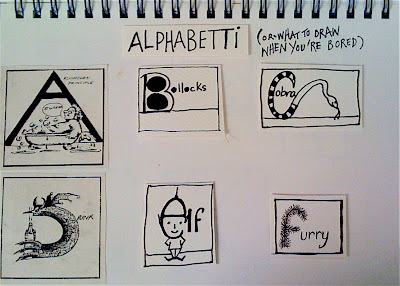 ALPHABETTi
(OR WHAT TO DRAW
WHEN YOU'RE BORED)
A
PRINCIPLE
EUREKA
Bollocks
Cobra
D
Elf
Furry